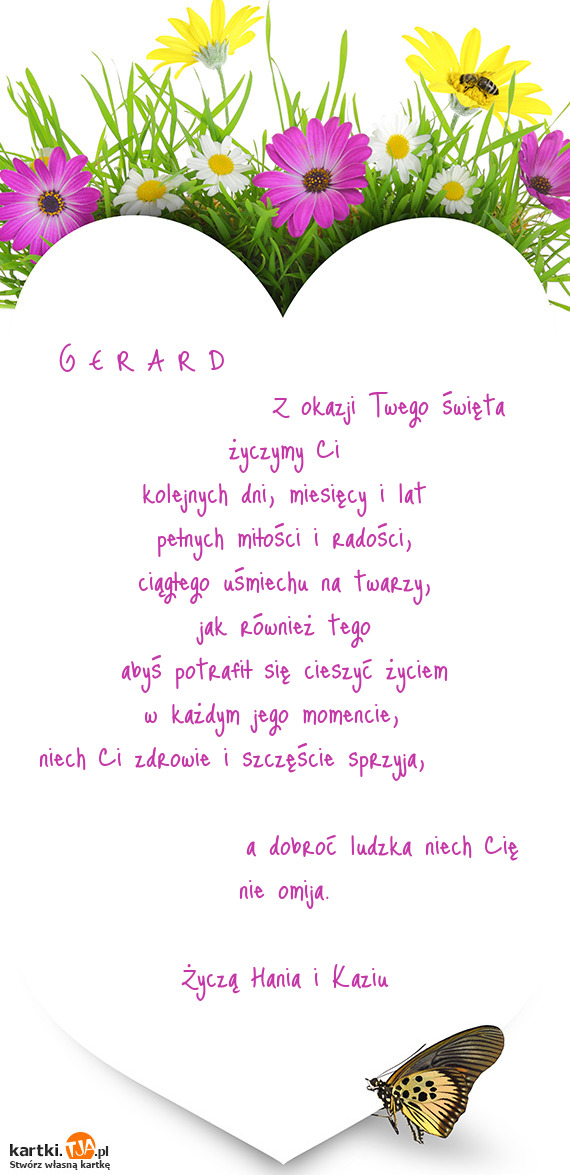 G E R A R D
Z okazji Twego święta
życzymy Ci
kolejnych dni, miesięcy i lat
pełnych miłości i radości,
ciągłego uśmiechu na twarzy,
jak również tego
abyś potrafił się cieszyć życiem
w każdym jego momencie,
niech Ci zdrowie i szczęście sprzyja,
a dobroć ludzka niech Cię
nie omija.
Życzą Hania i Kaziu
kartki.TJA.pl
Stwórz własną kartkę